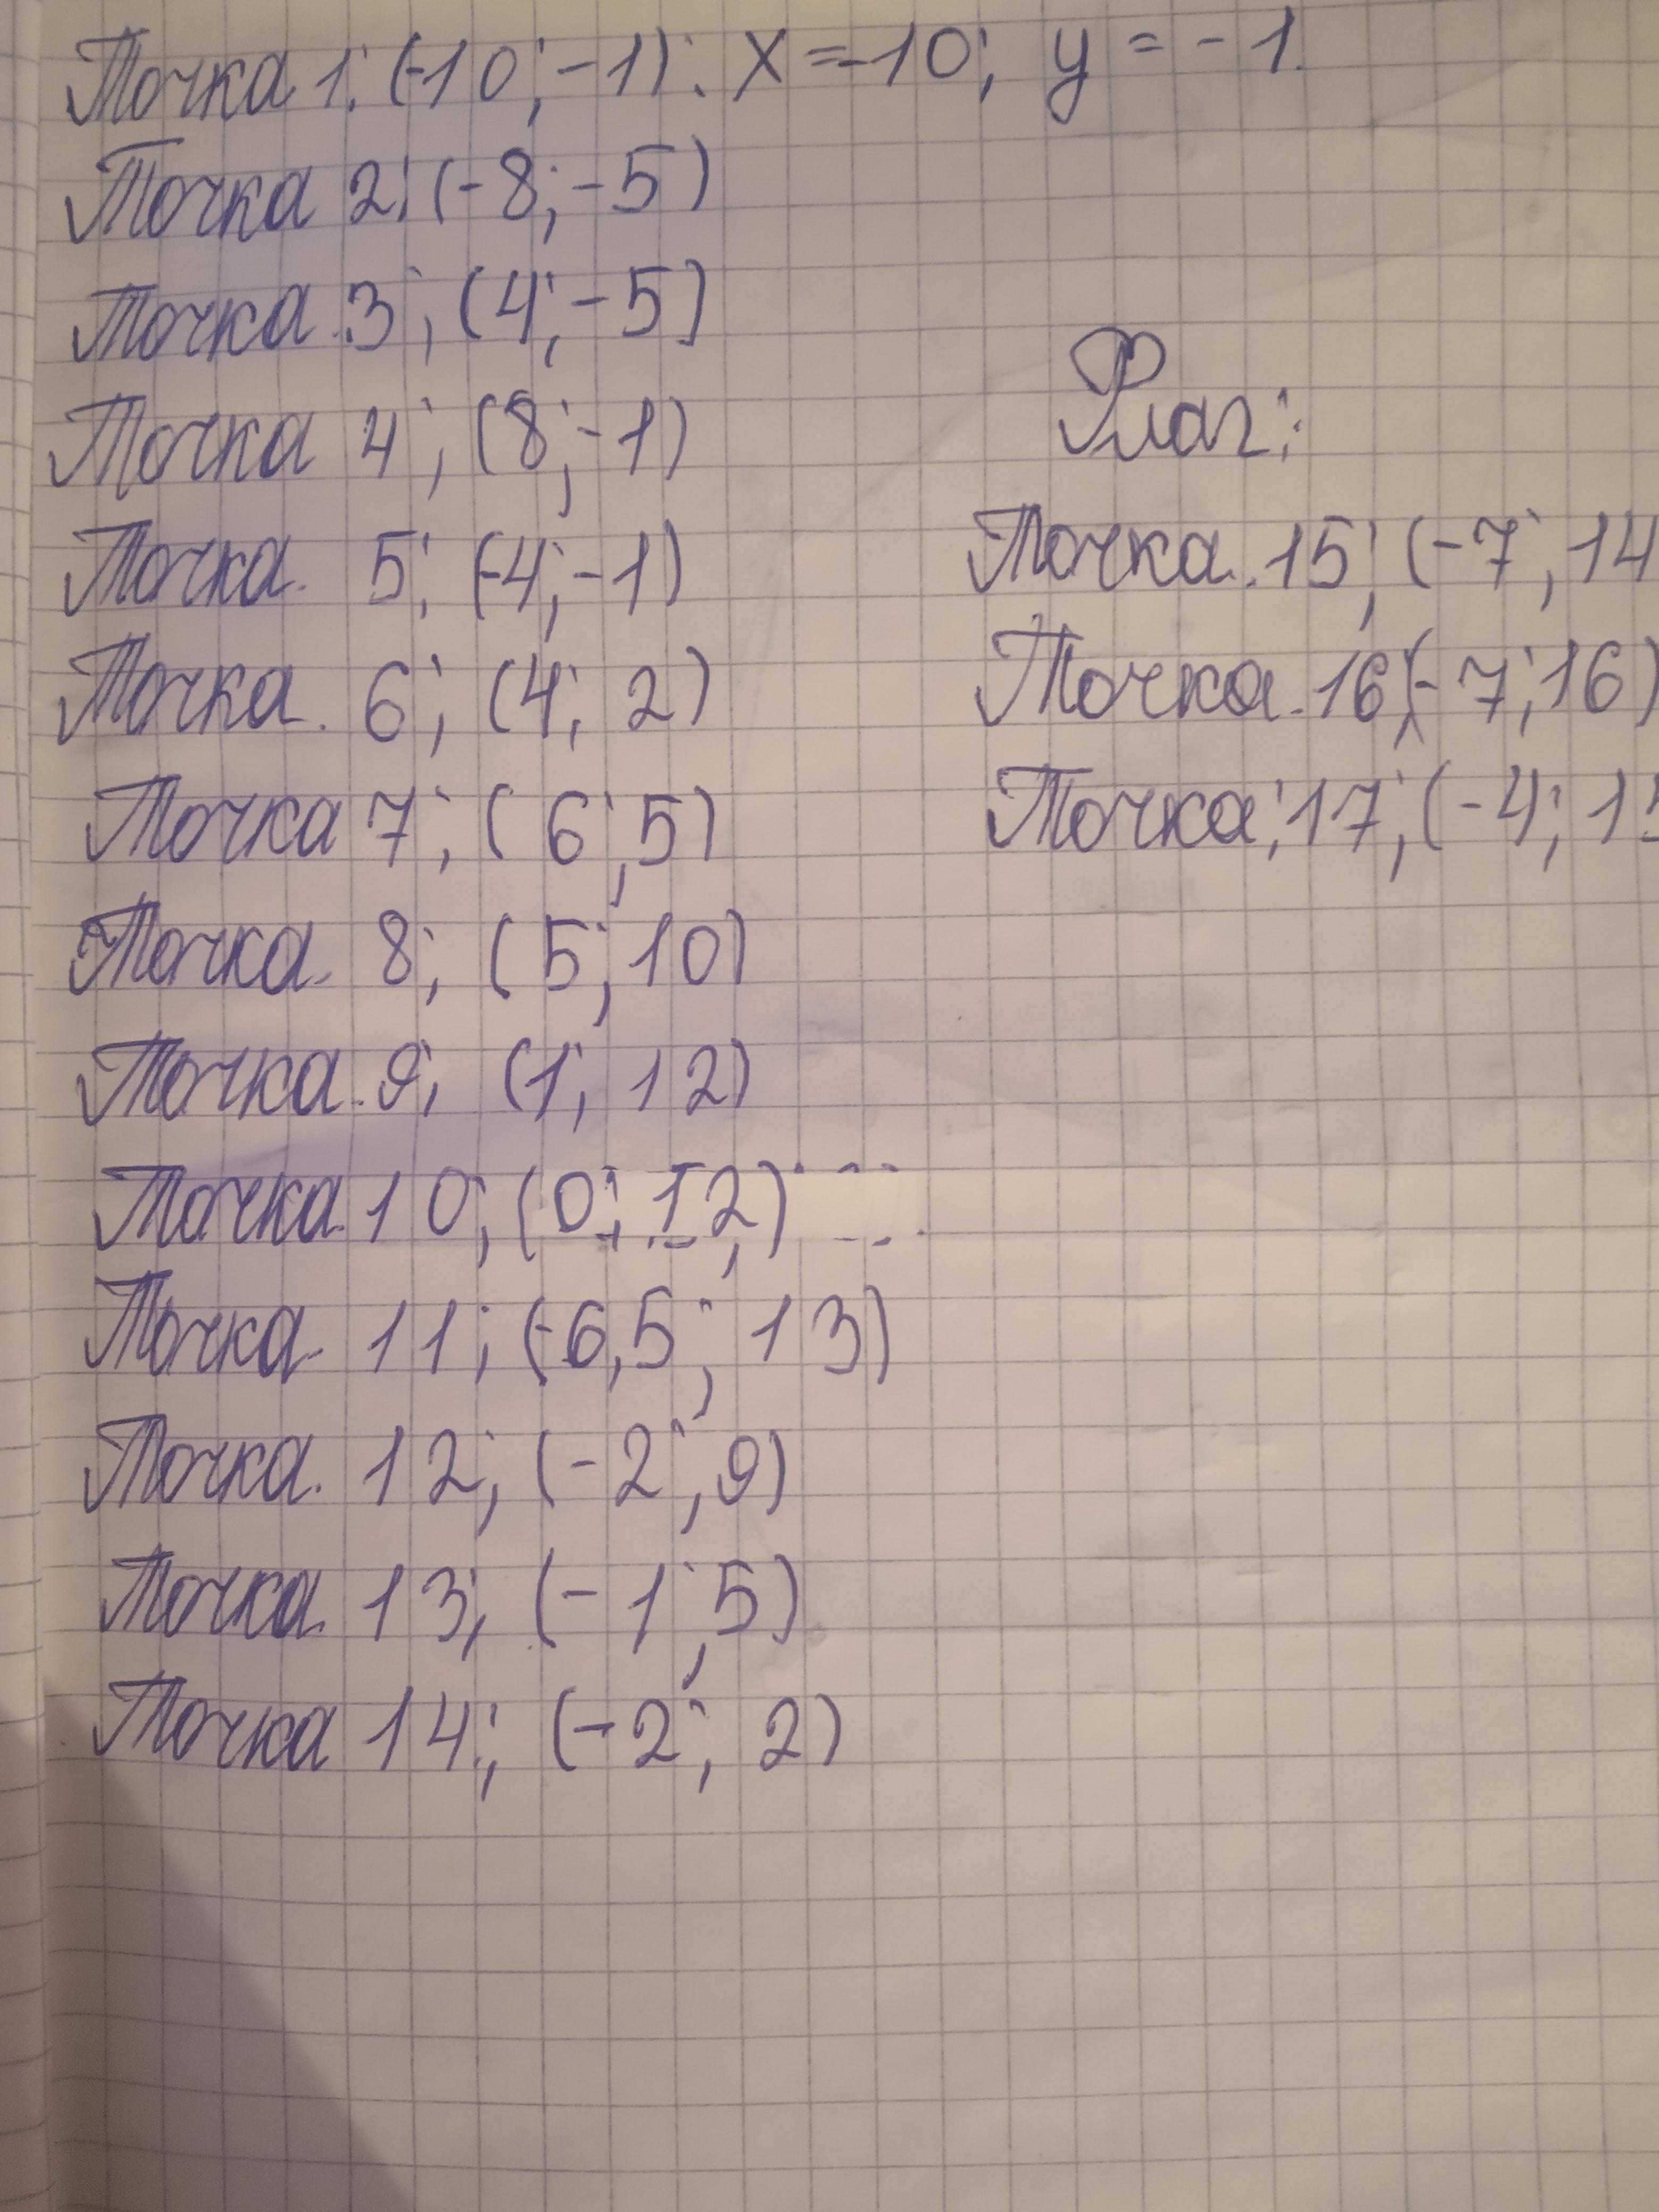 Точка 1; (-10; -1): x = -10; y = -1.
Точка 2; (-8; -5)
Точка 3; (4; -5)
Точка 4; (8; -1)
Точка 5; (-4; -1)
Точка 6; (4; 2)
Точка 7; (6; 5)
Точка 8; (5; 10)
Точка 9; (1; 12)
Точка 10; (0; 12)
Точка 11; (-6,5; 13)
Точка 12; (-2; 9)
Точка 13; (-1; 5)
Точка 14; (-2; 2)
Флаг:
Точка 15; (-7; 14
Точка 16; (-7; 16)
Точка; 17; (-4; 1